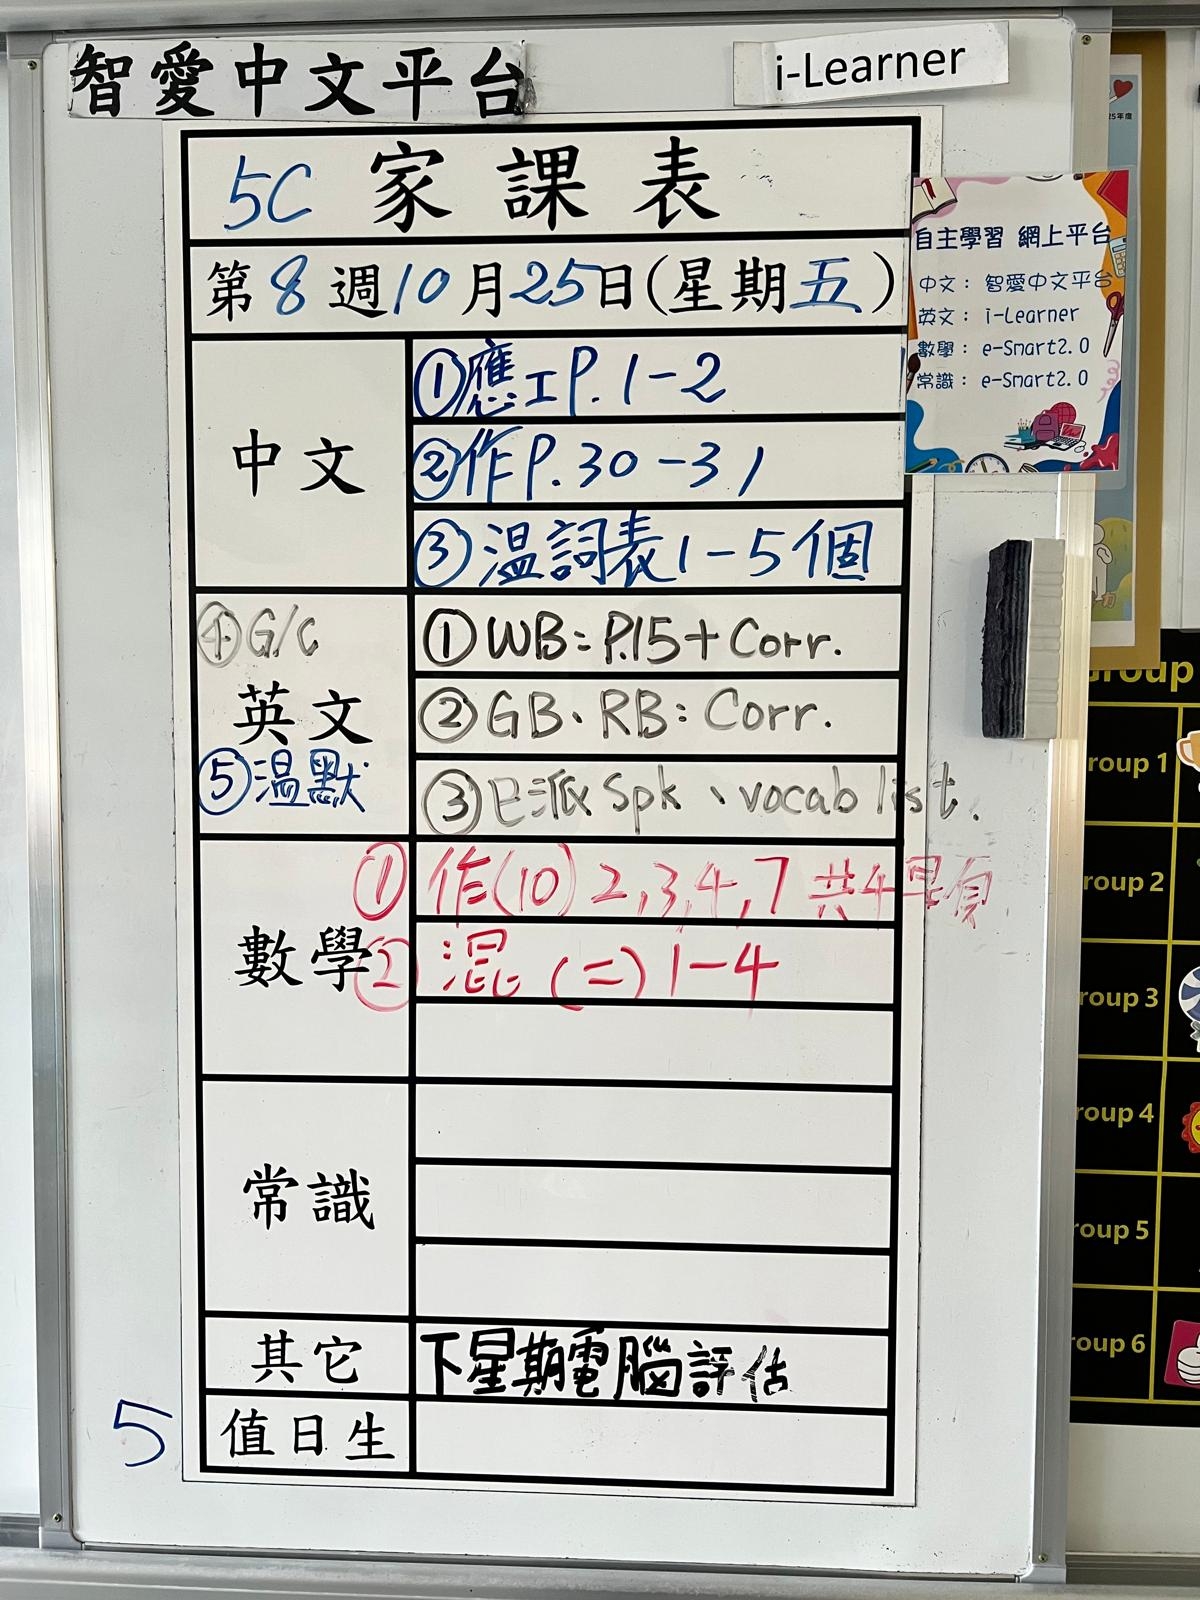 智愛中文平台
i-Learner
5C 家課表
第8週10月25日(星期五)
中文
①應工P.1-2
②作P.30-31
③溫詞表1-5個
英文
①WB:P.15+Corr.
②GB.RB:Corr.
③已派Spk、vocab list.
④G/C
⑤溫默
數學
①作(10)2,3,4,7共4題
②混(二)1-4
常識
其它
下星期電腦評估
值日生
5
自主學習 網上平台
中文：智愛中文平台
英文：i-Learner
數學：e-Smart2.0
常識：e-Smart2.0
25年度
Group
roup 1
roup 2
roup 3
roup 4
roup 5
roup 6